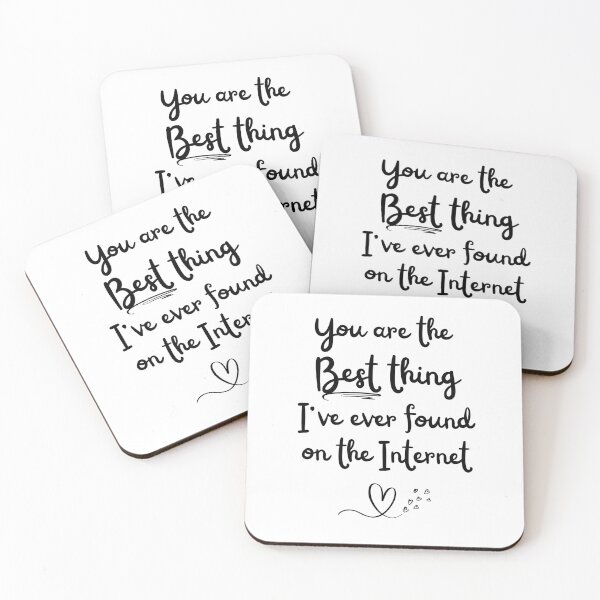 You are the
Best thing
I've ever found
on the Internet
You are the
Best thing
I've ever found
on the Internet
You are the
Best thing
I've found
You are the
Best thing
I've ever found
on the Internet